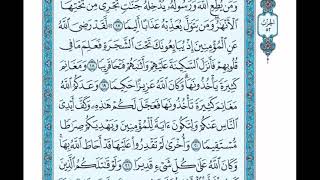 الحزب ٥٢
وَمَن يُطِعِ ٱللَّهَ وَرَسُولَهُۥ يُدْخِلْهُ جَنَّٰتٍ تَجْرِى مِن تَحْتِهَا
ٱلْأَنْهَٰرُ وَمَن يَتَوَلَّ يُعَذِّبْهُ عَذَابًا أَلِيمًا ١٧ لَّقَدْ رَضِىَ ٱللَّهُ
عَنِ ٱلْمُؤْمِنِينَ إِذْ يُبَايِعُونَكَ تَحْتَ ٱلشَّجَرَةِ فَعَلِمَ مَا فِى
قُلُوبِهِمْ فَأَنزَلَ ٱلسَّكِينَةَ عَلَيْهِمْ وَأَثَٰبَهُمْ فَتْحًا قَرِيبًا ١٨ وَمَغَانِمَ
كَثِيرَةً يَأْخُذُونَهَا وَكَانَ ٱللَّهُ عَزِيزًا حَكِيمًا ١٩ وَعَدَكُمُ ٱللَّهُ
مَغَانِمَ كَثِيرَةً تَأْخُذُونَهَا فَعَجَّلَ لَكُمْ هَٰذِهِۦ وَكَفَّ أَيْدِىَ
ٱلنَّاسِ عَنكُمْ وَلِتَكُونَ ءَايَةً لِّلْمُؤْمِنِينَ وَيَهْدِيَكُمْ صِرَٰطًا
مُّسْتَقِيمًا ٢٠ وَأُخْرَىٰ لَمْ تَقْدِرُوا۟ عَلَيْهَا قَدْ أَحَاطَ ٱللَّهُ بِهَا
وَكَانَ ٱللَّهُ عَلَىٰ كُلِّ شَىْءٍ قَدِيرًا ٢١ وَلَوْ قَٰتَلَكُمُ ٱلَّذِينَ